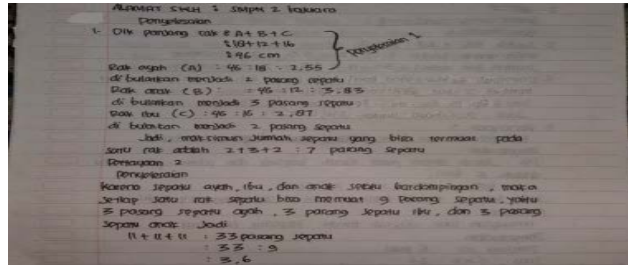 ALAMAT SKLH : SMPN 2
Penyelesaian
1. Dik panjang rak = A + B + C
: 18 + 12 + 16
: 46 cm
penyelesaian 1
Rak ayah (A) : 46 : 18 : 2,55
di bulatkan menjadi 2 pasang sepatu
Rak anak (B) : 46 : 12 : 3,83
di bulatkan menjadi 3 pasang sepatu
Rak ibu (C) : 46 : 16 : 2,87
di bulatkan menjadi 2 pasang sepatu
Jadi, maksimum jumlah sepatu yang bisa termuat pada
satu rak adalah 2+3+2 : 7 pasang sepatu
Pertanyaan 2
Penyelesaian
Karena sepatu ayah, ibu, dan anak selalu berdampingan, maka
setiap satu rak sepatu bisa memuat 9 pasang sepatu, yaitu
3 pasang sepatu ayah, 3 pasang sepatu ibu, dan 3 pasang
sepatu anak. Jadi
11 + 11 + 11 : 33 pasang sepatu
: 33 : 9
: 3,6